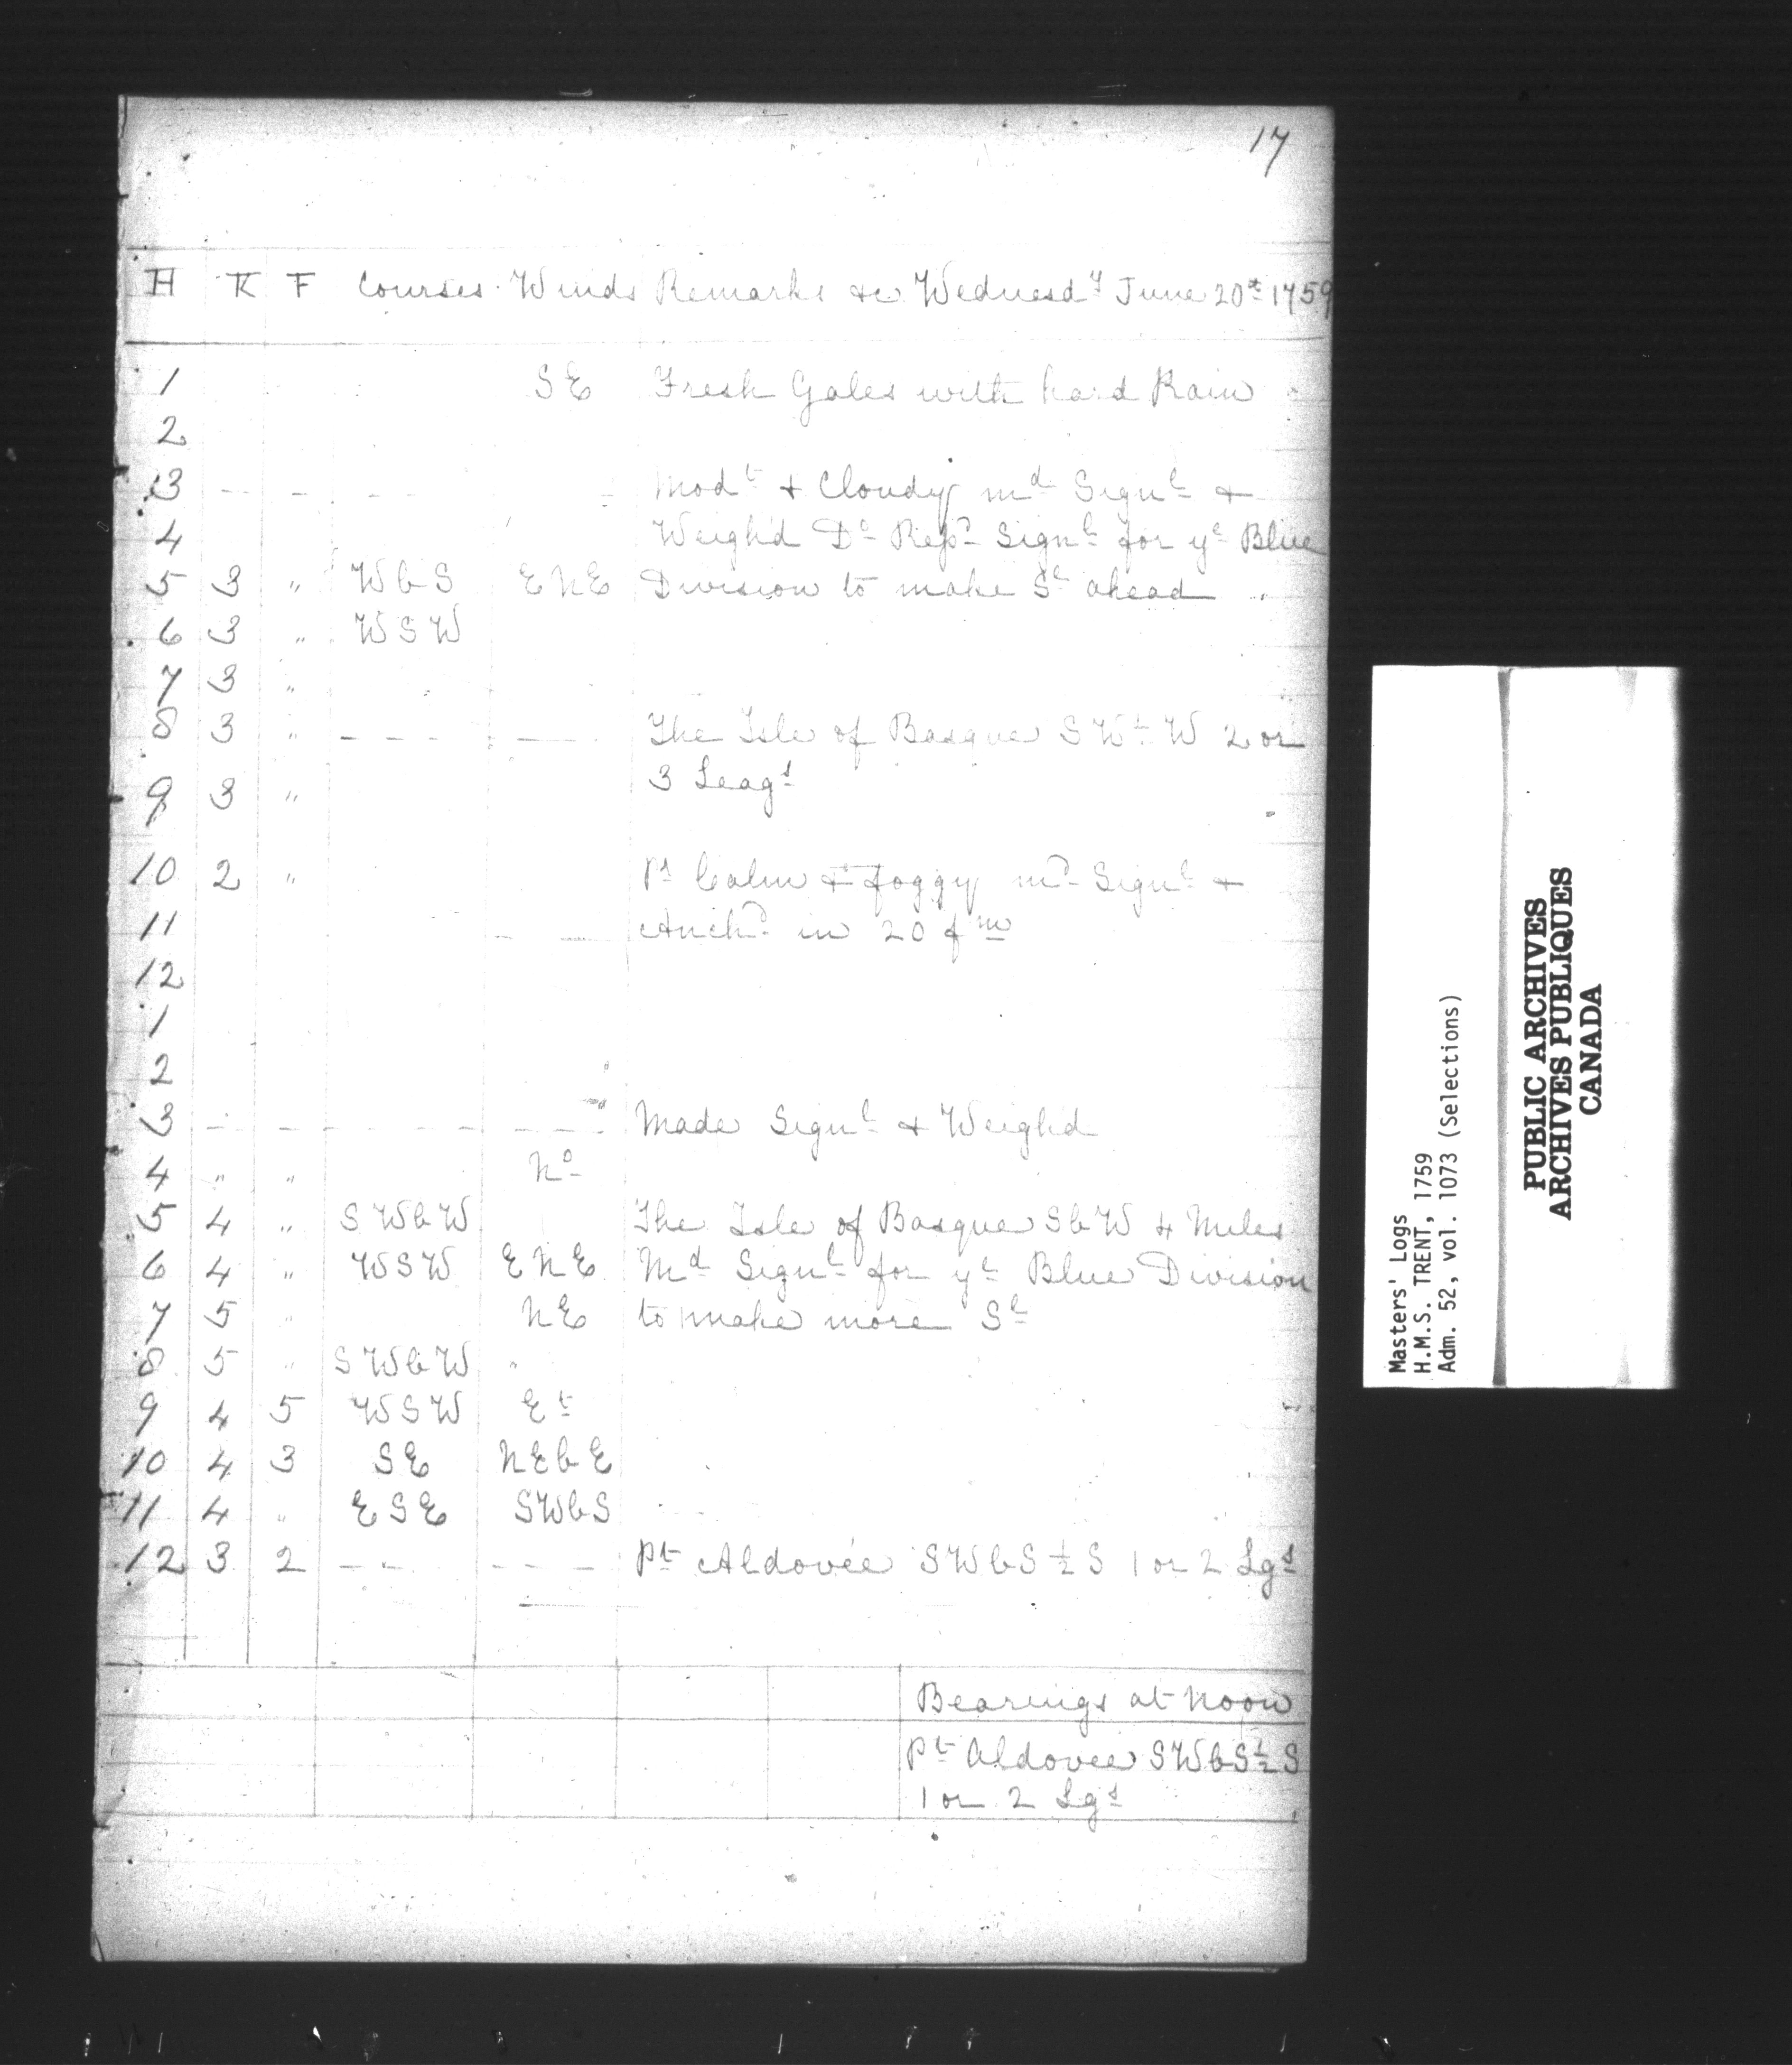 17
H K F Courses Winds Remarks &c Wednesdy June 20th 1759
1 SE Fresh Gales with hard Rain
2
3 - - - - - - - Modt & Cloudy md Signl &
4 Weigh'd Do Repd Signl for ye Blue
5 3 " WbS ENE Division to make Sl ahead
6 3 " WSW
7 3 "
8 3 " - - - - - - The Isle of Basque SWt W 2 or
9 3 " 3 Leags
10 2 " Pt Calm & foggy md Signl &
11 - - Anchd in 20 fm
12
1
2
3 - - - - - - - - Made Signl & Weighd
4 " " No
5 4 " SWbW The Isle of Basque SbW 4 Miles
6 4 " WSW ENE Md Signl for ye Blue Division
7 5 " NE to make more Sl
8 5 " SWbW "
9 4 5 WSW Et
10 4 3 SE NEbE
11 4 " ESE SWbS
12 3 2 - - - - - Pt Aldovée SWbS ½ S 1 or 2 Lgs
Bearings at Noon
Pt Aldovee SWbS ½ S
1 or 2 Lgs
Masters' Logs
H.M.S. TRENT, 1759
Adm. 52, vol. 1073 (Selections)
PUBLIC ARCHIVES
ARCHIVES PUBLIQUES
CANADA